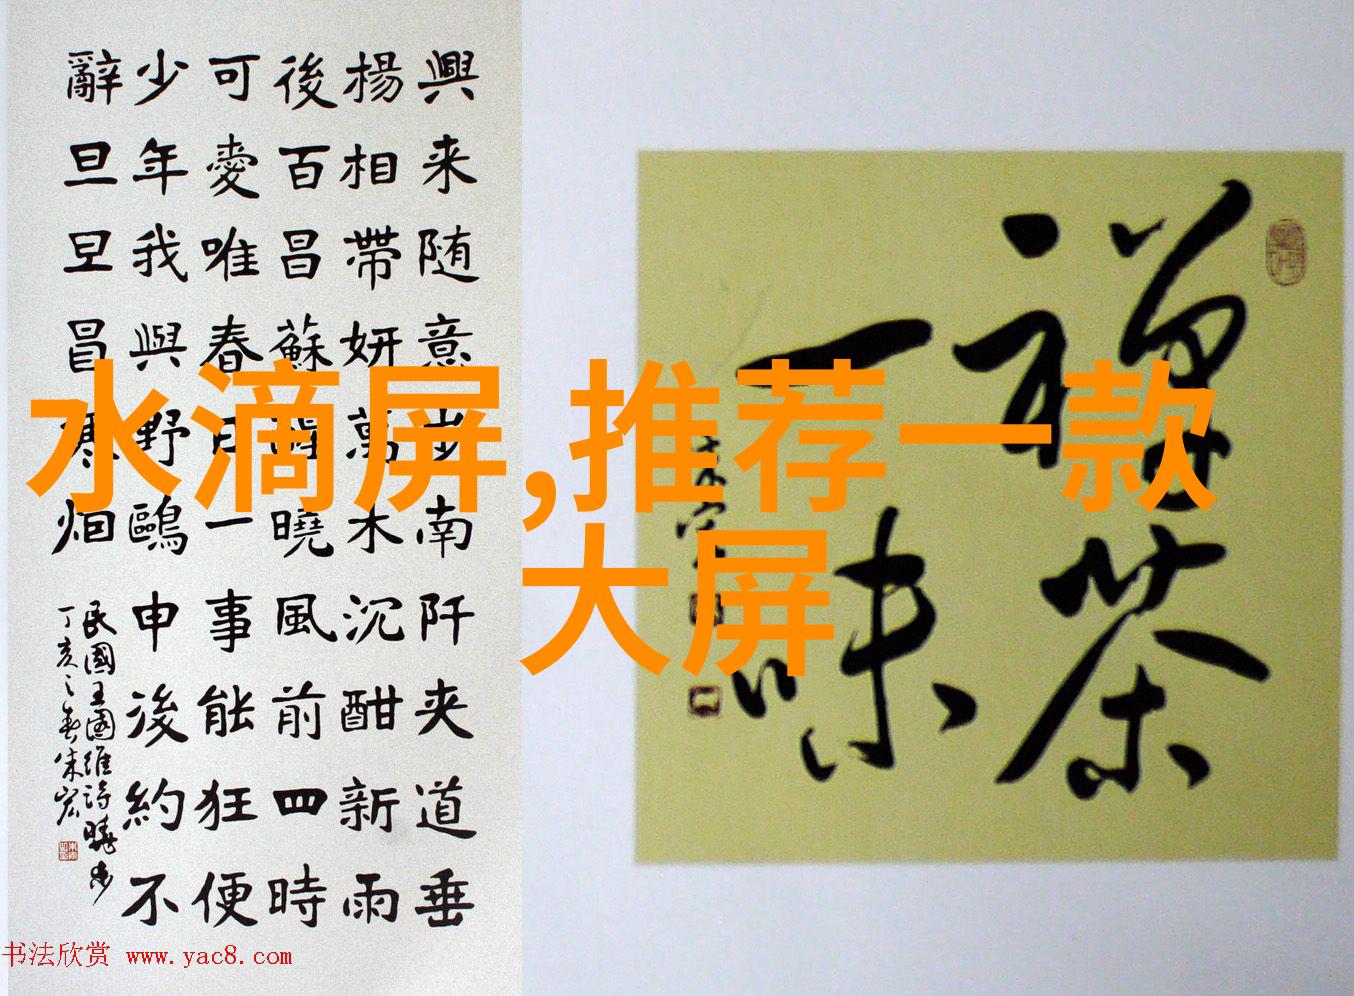 興来随意步南阡夹道垂
楊相帶妍萬木沉酣新雨
後百昌蘇醒曉風前四時
可愛唯春日一事能狂便
少年我與野鷗申後約不
辭旦旦冒寒烟
民國王國維詩曉步
丁亥之春朱宏
禪茶
一味
朱宏
水滴屏,推荐一款
大屏
书法欣赏 www.yac8.com